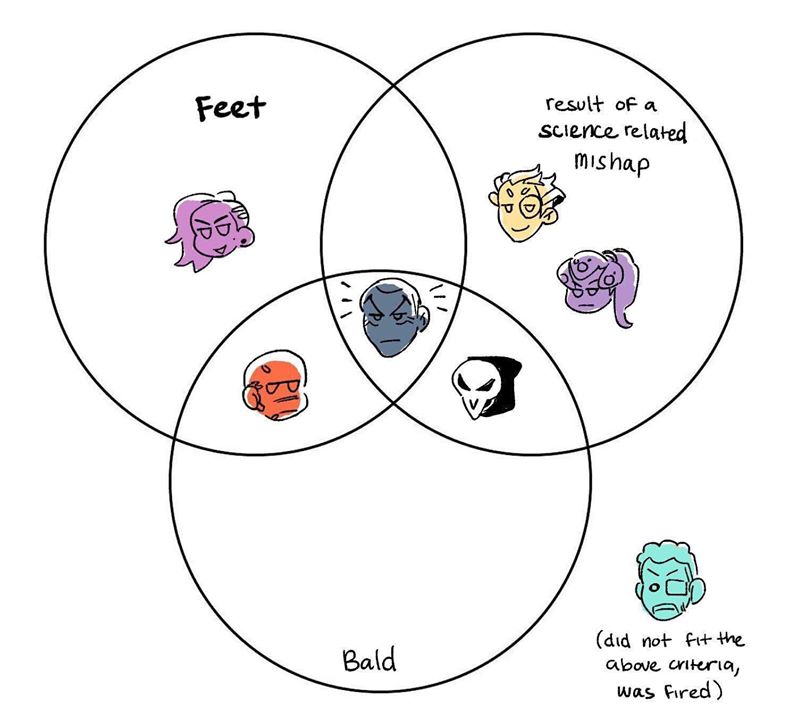 Feet
result of a
science related
mishap
Bald
(did not fit the
above criteria,
was fired)